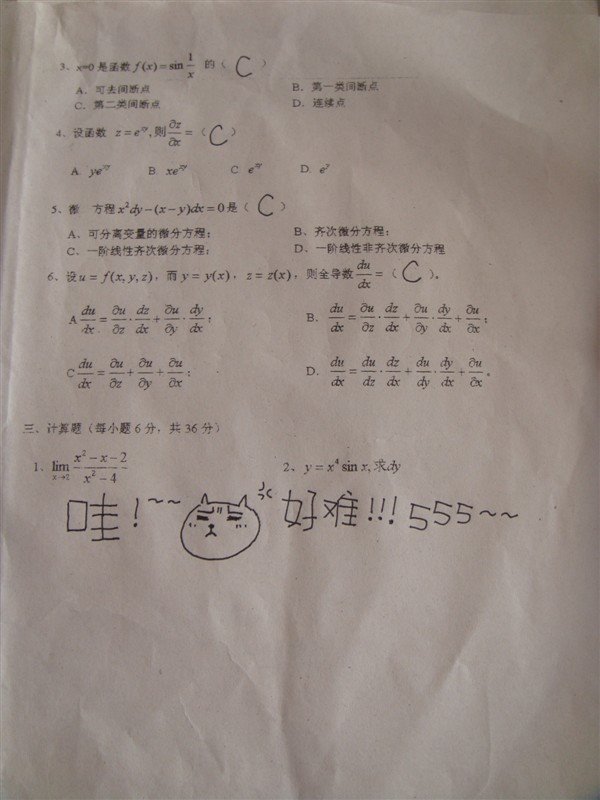 3、x=0 是函数 f(x)=sin 1/x 的（ C ）
A．可去间断点 B．第一类间断点
C．第二类间断点 D．连续点
4．设函数 z=e^{xy},则 ∂z/∂x =（ C ）
A. ye^{xy} B. xe^{xy} C. e^{xy} D. e^y
5、微 方程 x²dy-(x-y)dx=0 是（ C ）
A、可分离变量的微分方程； B、齐次微分方程；
C、一阶线性齐次微分方程； D、一阶线性非齐次微分方程
6、设 u=f(x,y,z)，而 y=y(x)，z=z(x)，则全导数 du/dx =（ C ）。
A du/dx = ∂u/∂z · dz/dx + ∂u/∂y · dy/dx； B. du/dx = ∂u/∂z · dz/dx + ∂u/∂y · dy/dx + ∂u/∂x；
C du/dx = ∂u/∂z + ∂u/∂y + ∂u/∂x； D. du/dx = du/dz · dz/dx + du/dy · dy/dx + ∂u/∂x。
三、计算题（每小题 6 分，共 36 分）
1、lim x→2 (x²-x-2)/(x²-4) 2、y=x⁴ sin x,求dy
哇！~~ 好难!!! 555~~